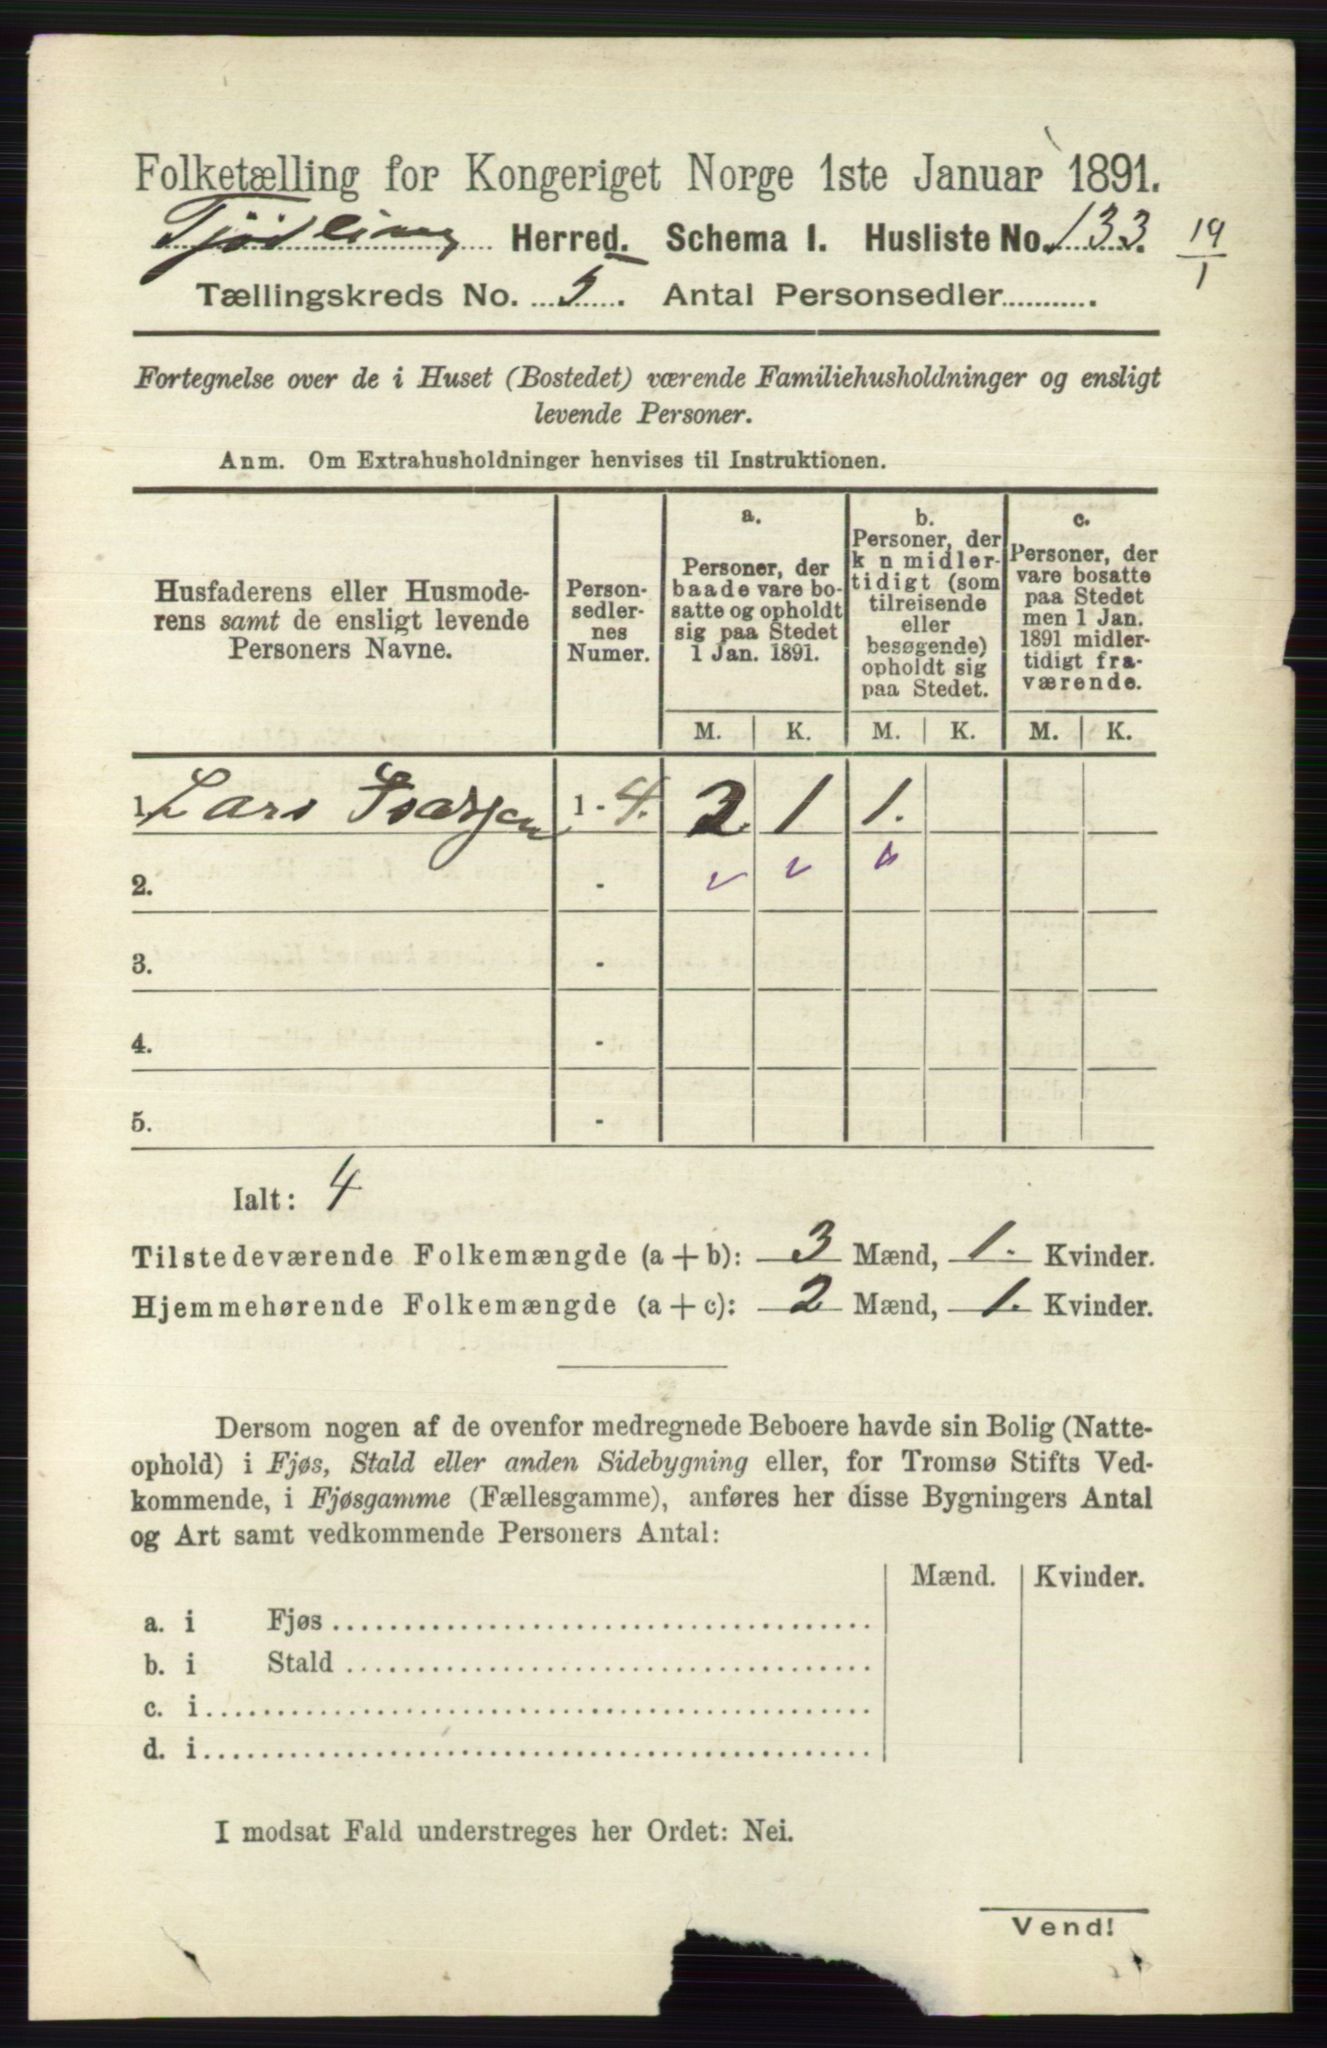 Folketælling for Kongeriget Norge 1ste Januar 1891.
Tjødling Herred. Schema I. Husliste No. 133. 19/1
Tællingskreds No. 5. Antal Personsedler............
Fortegnelse over de i Huset (Bostedet) værende Familiehusholdninger og ensligt
levende Personer.
Anm. Om Extrahusholdninger henvises til Instruktionen.
Husfaderens eller Husmode-
rens samt de ensligt levende
Personers Navne.
Person-
sedler-
nes
Numer.
a.
Personer, der
baade vare bo-
satte og opholdt
sig paa Stedet
1 Jan. 1891.
b.
Personer, der
k n midler-
tidigt (som
tilreisende
eller
besøgende)
opholdt sig
paa Stedet.
c.
Personer, der
vare bosatte
paa Stedet
men 1 Jan.
1891 midler-
tidigt fra-
værende.
M. K. M. K. M. K.
1. Lars Ivarsen 1 - 4. 2 1 1.
2. -
3. -
4. -
5. -
Ialt: 4
Tilstedeværende Folkemængde (a + b): 3 Mænd, 1. Kvinder.
Hjemmehørende Folkemængde (a + c): 2 Mænd, 1. Kvinder.
Dersom nogen af de ovenfor medregnede Beboere havde sin Bolig (Natte-
ophold) i Fjøs, Stald eller anden Sidebygning eller, for Tromsø Stifts Ved-
kommende, i Fjøsgamme (Fællesgamme), anføres her disse Bygningers Antal
og Art samt vedkommende Personers Antal:
Mænd. Kvinder.
a. i Fjøs
b. i Stald
c. i
d. i
I modsat Fald understreges her Ordet: Nei.
Vend!